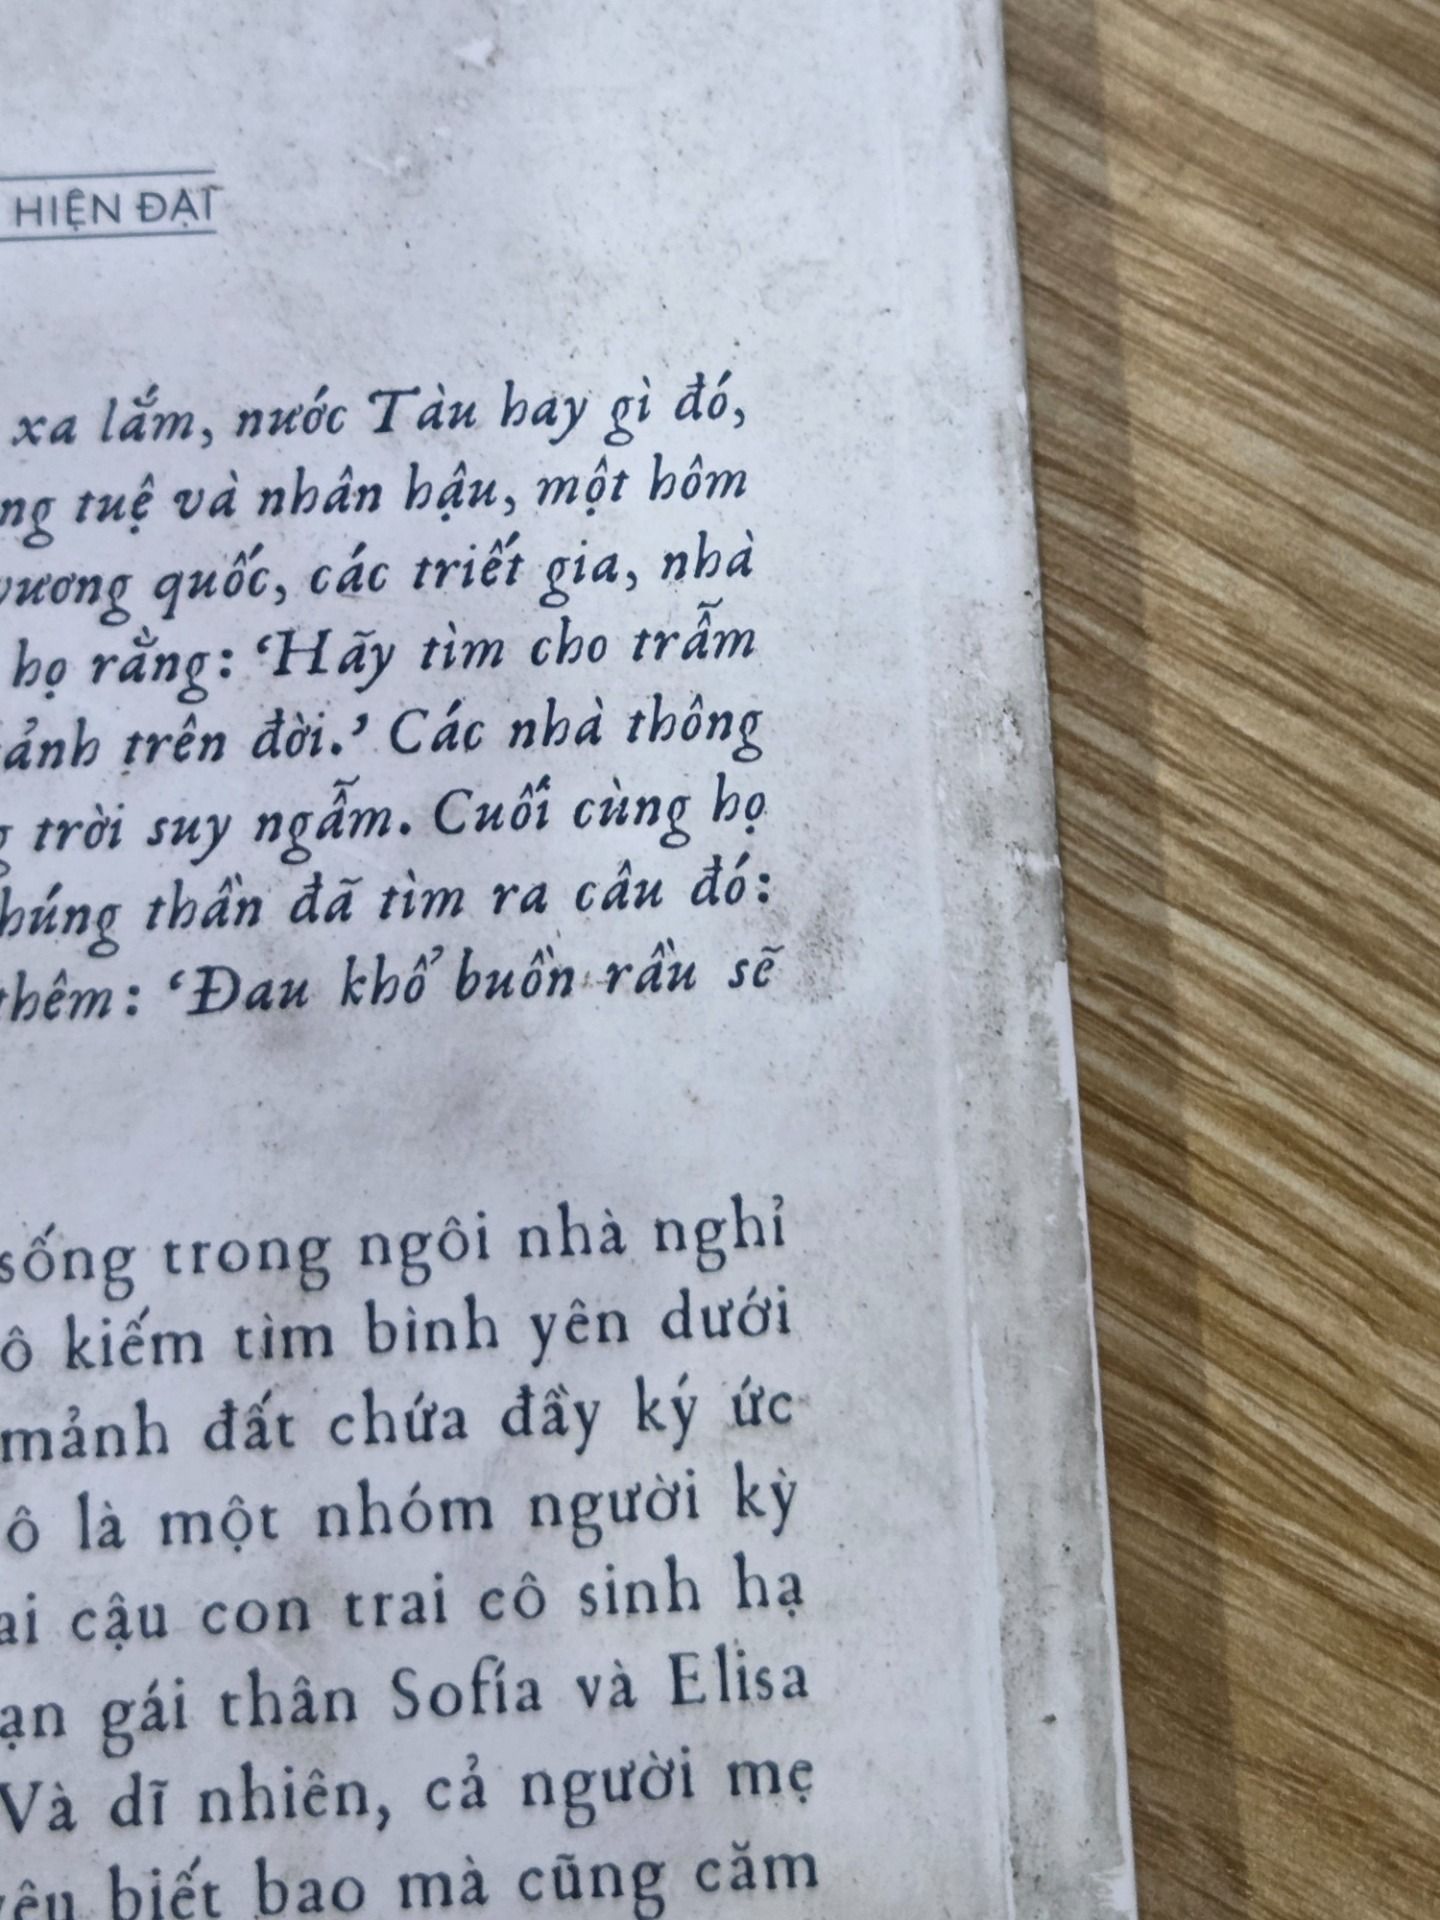 HIỆN ĐẠI
xa lắm, nước Tàu hay gì đó,
tuệ và nhân hậu, một hôm
vương quốc, các triết gia, nhà
họ rằng: ‘Hãy tìm cho trẫm
trên đời.’ Các nhà thông
trời suy ngẫm. Cuối cùng họ
thần đã tìm ra câu đó:
thêm: ‘Đau khổ buồn rầu sẽ
sống trong ngôi nhà nghỉ
kiếm tìm bình yên dưới
mảnh đất chứa đầy ký ức
là một nhóm người kỳ
cậu con trai cô sinh hạ
gái thân Sofía và Elisa
Và dĩ nhiên, cả người mẹ
biết bao mà cũng căm